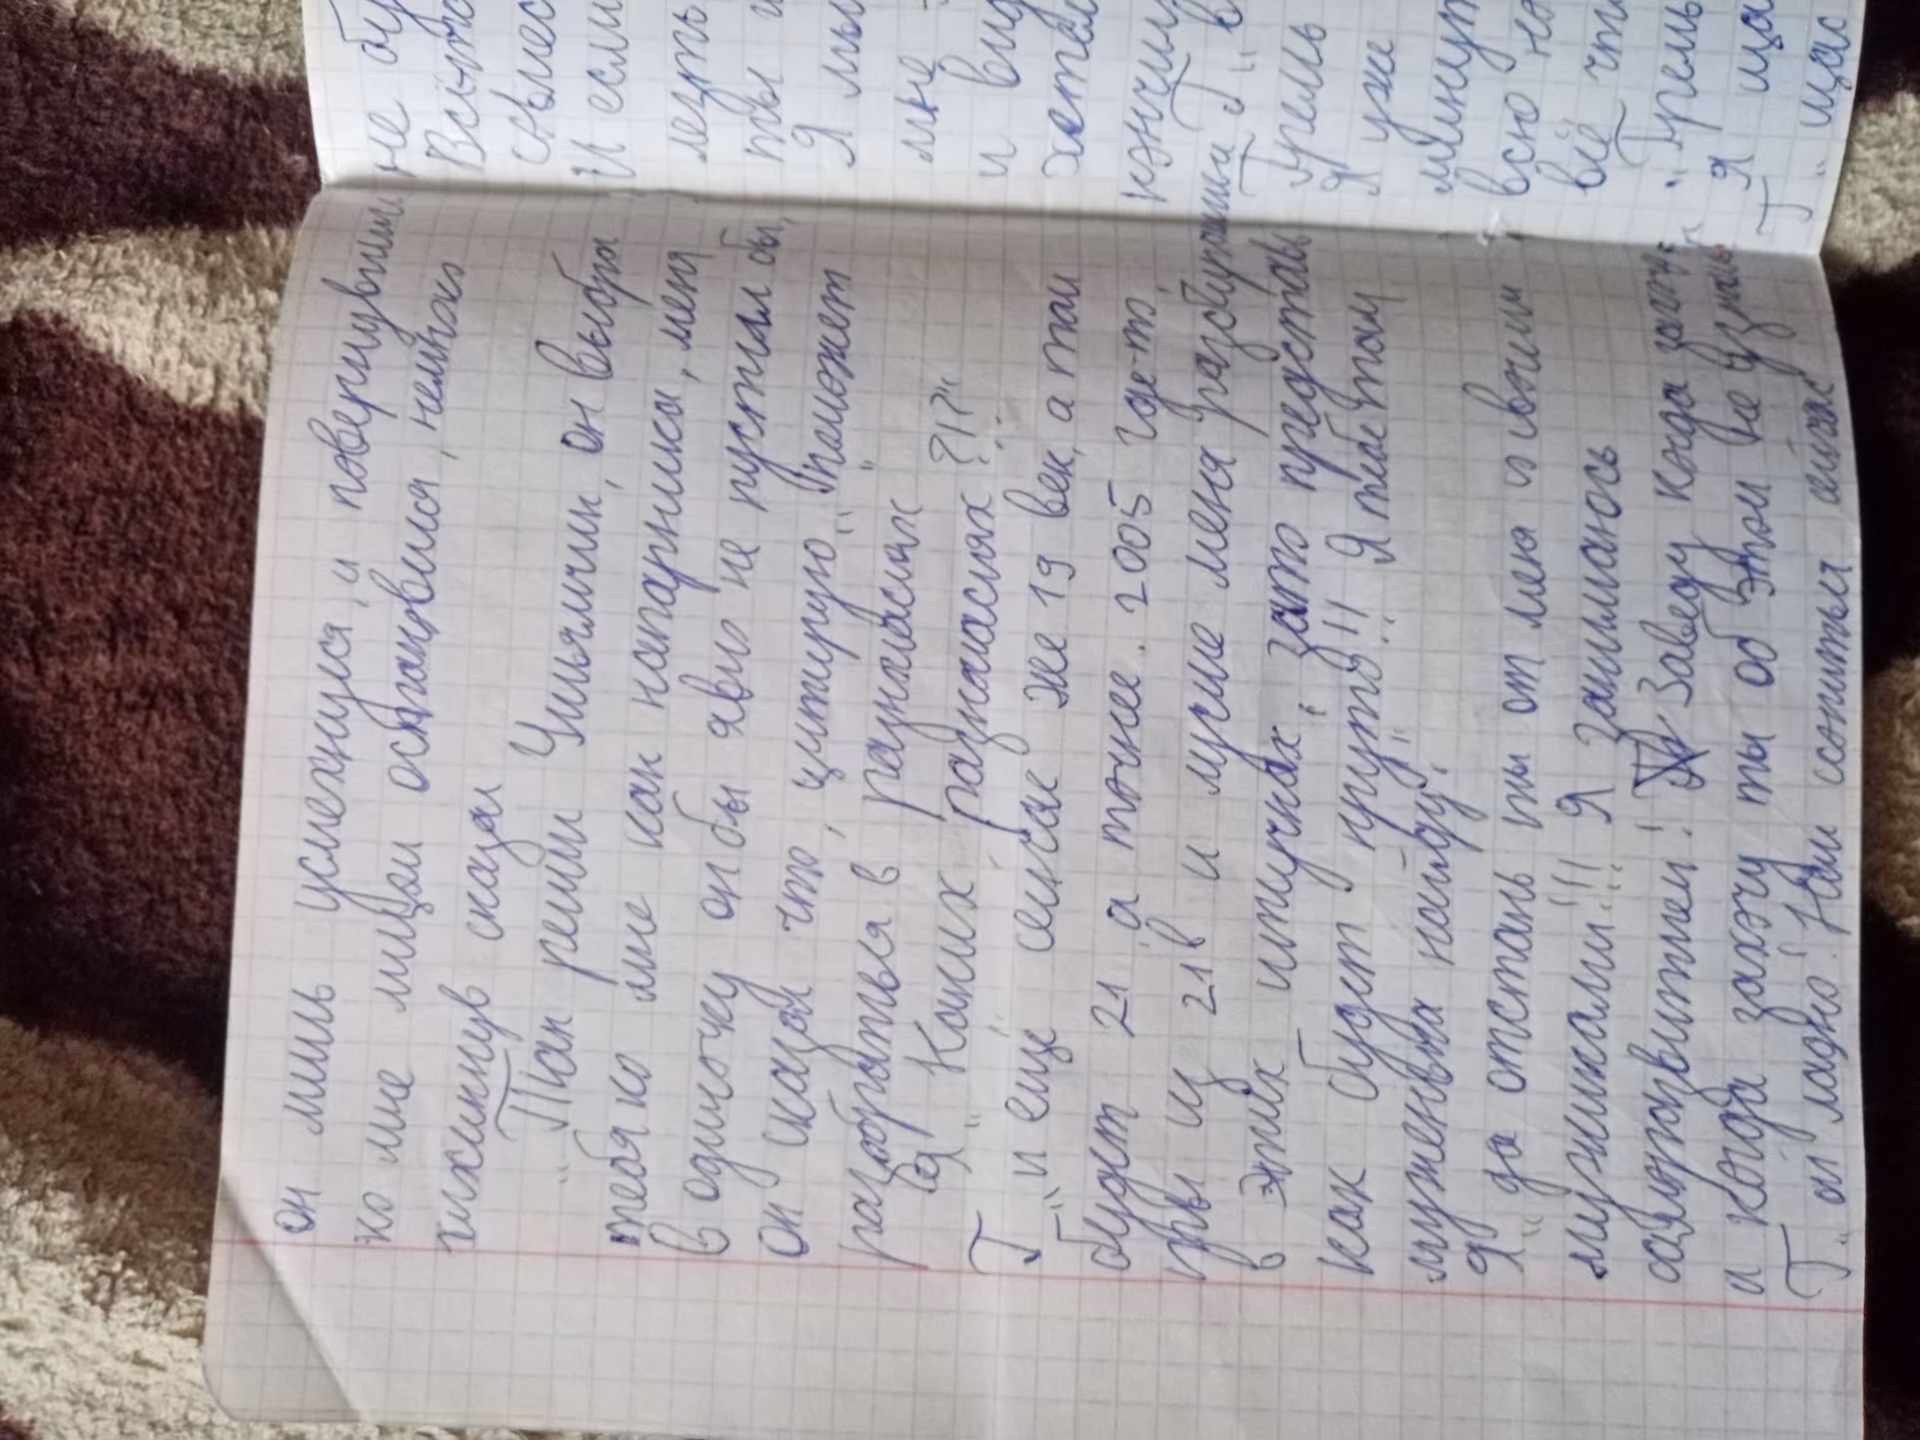 он лишь усмехнулся, и повернувшись
ко мне лицом остановился, немного
хихикнув сказал
"Так решил Уильямчик, он выбрал
тебя ко мне как напарника, меня
в одиночку он бы явно не пустил бы,
он сказал что, цитирую "поможет
разобраться в разногласиях"
Я "Каких разногласиях?!?"
Г "и ещё сейчас же 19 век, а там
будет 21 а точнее. 2005 где-то,
ты из 21в и лучше меня разбираешься
в этих штучках, зато представь
как будет круто!!! Я тебе там
муженька найду."
Я "да отстань ты от меня со своими
мужиками!!! Я занимаюсь
саморазвитием! Заведу когда захочу
и когда захочу ты об этом не узнаешь"
Г "ой ладно! Нам сейчас
не бу
сы
и если
лезть
ты
Я
мне
и вид
хотел
Г "в
Грель
Я уже
минут
всю но
всё что
"Грель
Я "ща
Г "щас